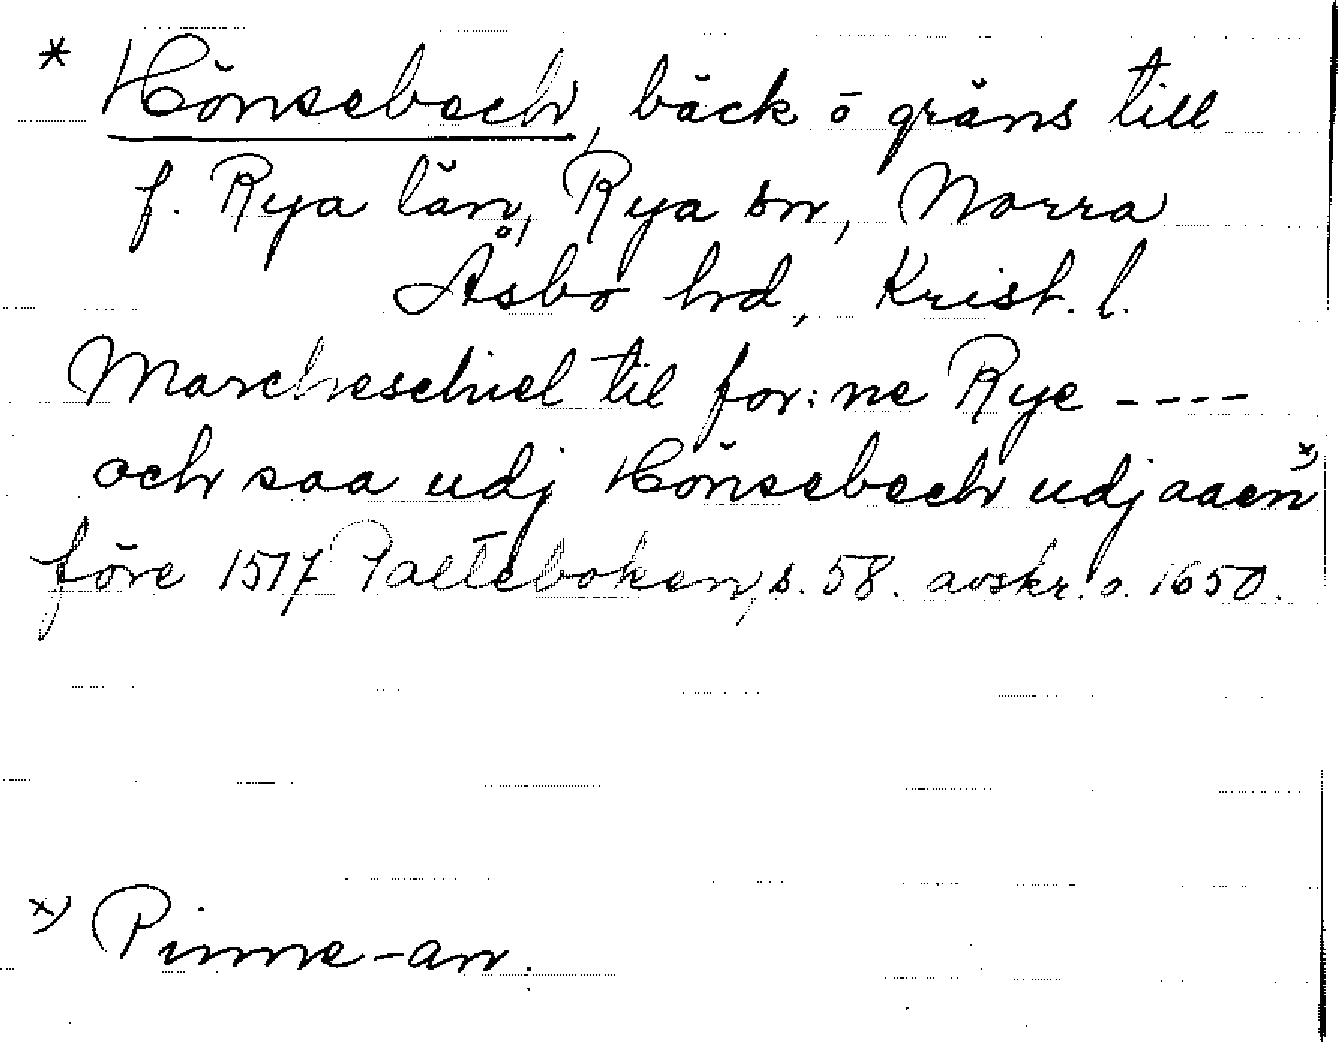 * Hönsebech, bäck o gräns till
f. Rya län, Rya sn, Norra
Åsbo hd, Krist. l.
Marcheschiel til for:ne Rye ----
och saa udj Hönsebech udj aaen x)
före 1517 Palteboken, s. 58. avskr. o. 1650.
x) Pinne-an.